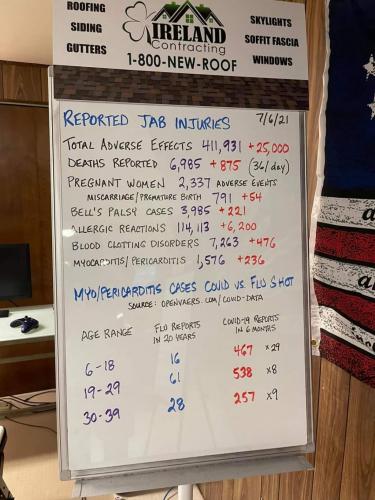 ROOFING
SIDING
GUTTERS
IRELAND
Contracting
1-800-NEW-ROOF
SKYLIGHTS
SOFFIT FASCIA
WINDOWS
REPORTED JAB INJURIES 7/6/21
TOTAL ADVERSE EFFECTS 411,931 +25,000
DEATHS REPORTED 6,985 +875 (36/day)
PREGNANT WOMEN 2,337 ADVERSE EVENTS
MISCARRIAGE/PREMATURE BIRTH 791 +54
BELL'S PALSY CASES 3,985 +221
ALLERGIC REACTIONS 114,113 +6,200
BLOOD CLOTTING DISORDERS 7,263 +476
MYOCARDITIS/PERICARDITIS 1,576 +236
MYO/PERICARDITIS CASES COVID VS. FLU SHOT
SOURCE: OPENVAERS.COM/COVID-DATA
AGE RANGE FLU REPORTS IN 20 YEARS COVID-19 REPORTS IN 6 MONTHS
6-18 16 467 x29
19-29 61 538 x8
30-39 28 257 x9